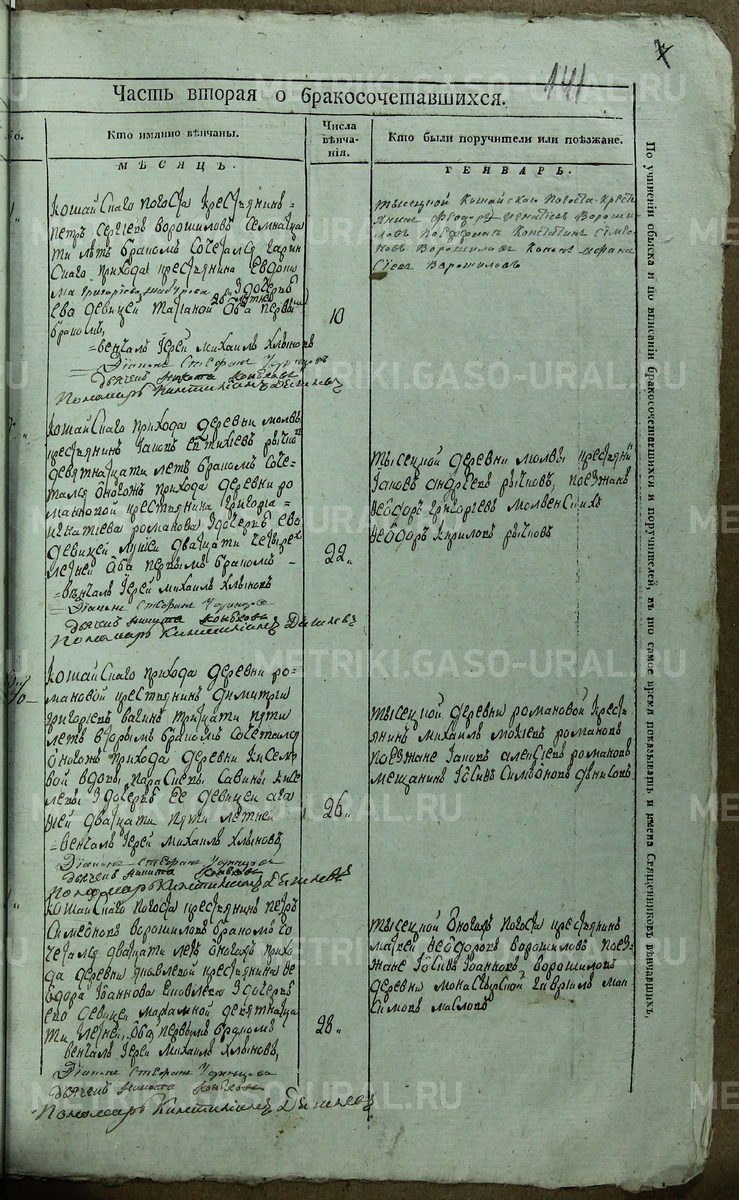 141
Часть вторая о бракосочетавшихся.
Кто имянно вѣнчаны.
Числа вѣнчанія.
Кто были поручители или поѣзжане.
МѢСЯЦЪ.
ГЕНВАРЬ.
Кошайскаго погоста крестьянинъ
петръ Сергѣевъ ворошиловъ семнатца
ти лѣтъ бракомъ сочетался гарин
скаго прихода крестьянина Евдоки
ма григорьева здочерью
ево девицей татианой оба первымъ
бракомъ,
венчалъ Iерей михаилъ Хлыновъ
Дiаконъ Стефанъ Удинцовъ
дьячекъ никита
Пономарь
10
тысецкой Кошайскаго погоста крест
янинъ Федоръ игнатiевъ Вороши
ловъ поезжане Константинъ Симео
новъ Ворошиловъ афана
сiевъ Ворошиловъ
Кошайскаго прихода деревни молвы
крестьянинъ Iаковъ евтихiевъ рычковъ
девятнатцати летъ бракомъ соче
тался оногожъ прихода деревни ро
мановой крестьянина григорья
игнатiева романова здочерью ево
девицей двацати четырех
летней оба первымъ бракомъ
венчалъ Iерей михаилъ Хлыновъ
Дiаконъ Стефанъ Удинцовъ
дьячекъ никита
Пономарь
22
тысецкой деревни молвы крестьянинъ
Iаковъ андреевъ рычковъ, поезжане
Ѳеодоръ григорьевъ молвенскихъ
Ѳеодоръ Кириловъ рычковъ
Кошайскаго прихода деревни ро
мановой крестьянинъ димитрiй
григорьевъ вагинъ тритцати пяти
летъ вторымъ бракомъ сочетался
оногожъ прихода деревни киселе
вой вдовы параскевы савины кисе
левы здочерью ее девицей ага
двацати пяти летней
венчалъ Iерей михаилъ Хлыновъ
Дiаконъ Стефанъ Удинцовъ
дьячекъ никита
Пономарь
26
тысецкой деревни романовой крестья
янинъ михаилъ романовъ
поезжане Iаковъ алексiевъ романовъ
мещанинъ Iосифъ Симеоновъ
Кошайскаго погоста крестьянинъ петръ
Симеоновъ ворошиловъ бракомъ со
четался двацати летъ оногожъ прихо
да деревни яковлевой крестьянина Ѳе
одора Iоаннова яковлева здочерью
ево девицей марианной девятнатца
ти летней, оба первымъ бракомъ
венчалъ Iерей михаилъ Хлыновъ
Дiаконъ Стефанъ Удинцовъ
дьячекъ никита
Пономарь
28
тысецкой оногожъ погоста крестьянинъ
матвей Ѳеодоровъ ворошиловъ поез
жане Iосифъ Iоанновъ ворошиловъ
деревни монастырской гаврiилъ мак
симовъ масловъ
По учиненіи обыска и по вписаніи бракосочетавшихся и поручителей, въ то самое время показывать и имена Священниковъ вѣнчавшихъ.
METRIKI.GASO-URAL.RU